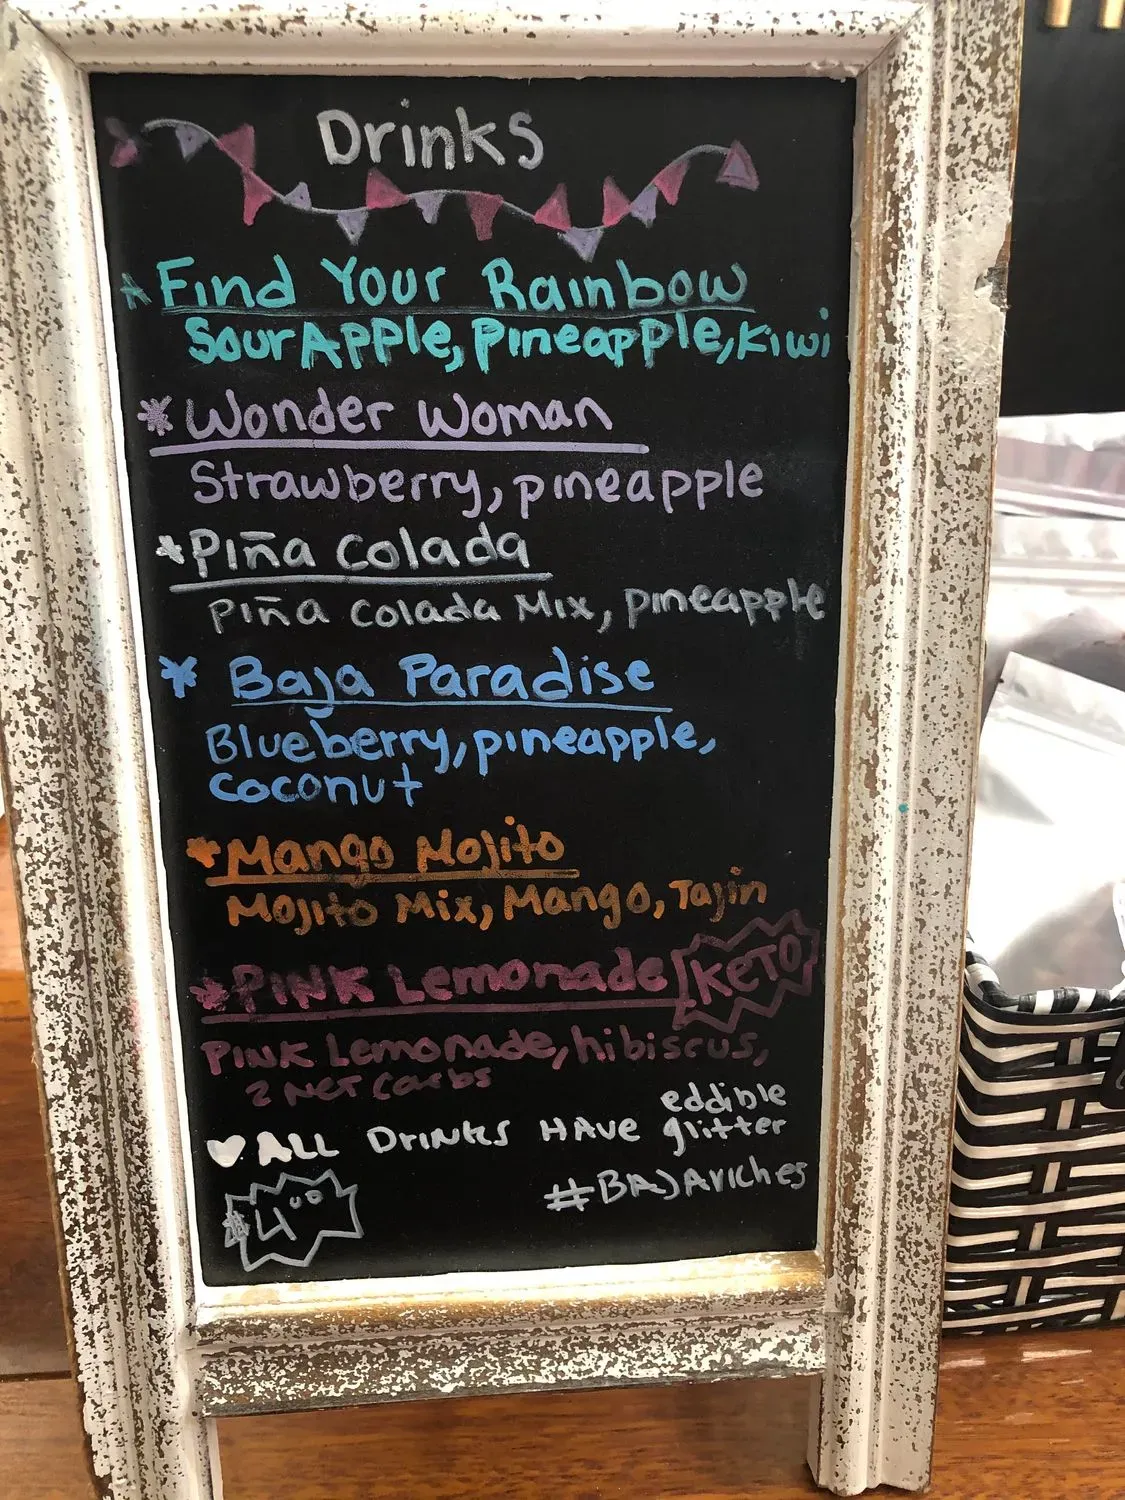 Drinks
* Find Your Rainbow
Sour Apple, Pineapple, Kiwi
* Wonder Woman
Strawberry, pineapple
* Piña Colada
Piña Colada Mix, pineapple
* Baja Paradise
Blueberry, pineapple,
coconut
* Mango Mojito
Mojito Mix, Mango, Tajin
* PINK Lemonade KETO
PINK Lemonade, hibiscus,
2 NET carbs
♥ ALL Drinks HAVE eddible glitter
#BAJARICHES
$4.00